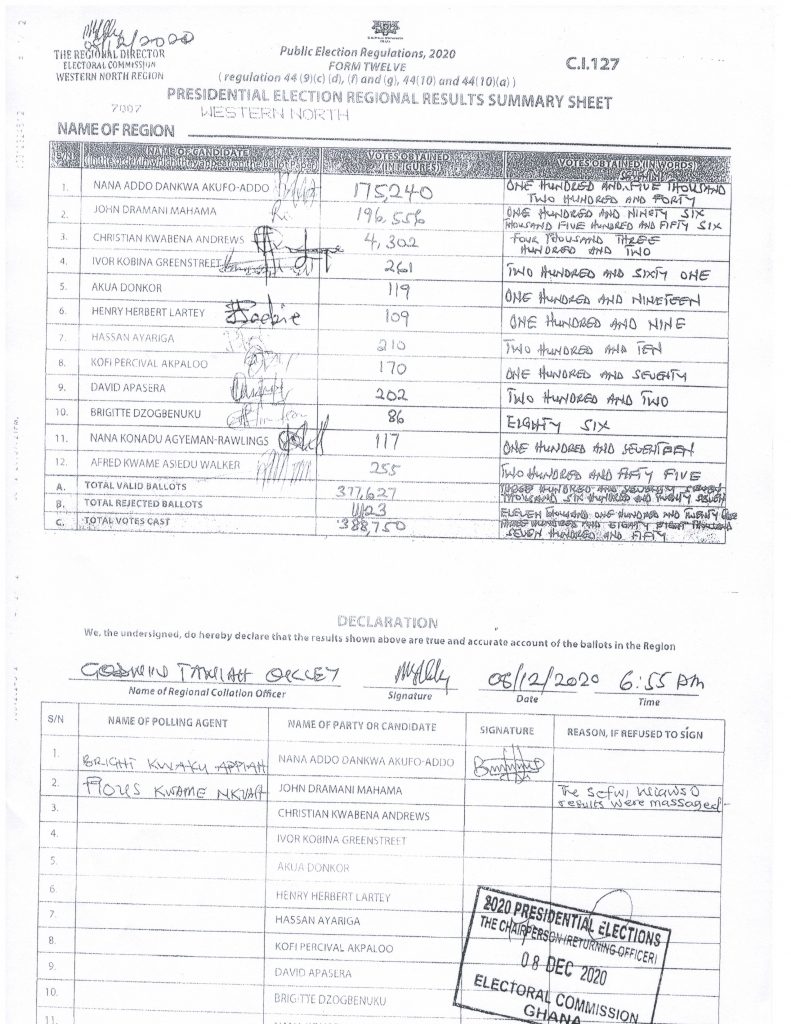 08/12/2020
THE REGIONAL DIRECTOR
ELECTORAL COMMISSION
WESTERN NORTH REGION
Public Election Regulations, 2020
FORM TWELVE
( regulation 44 (9)(c) (d), (f) and (g), 44(10) and 44(10)(a) )
C.I.127
PRESIDENTIAL ELECTION REGIONAL RESULTS SUMMARY SHEET
WESTERN NORTH
NAME OF REGION
NAME OF CANDIDATE VOTES OBTAINED (IN FIGURES) VOTES OBTAINED (IN WORDS)
1. NANA ADDO DANKWA AKUFO-ADDO 175,240 ONE HUNDRED AND FIVE THOUSAND
TWO HUNDRED AND FORTY
2. JOHN DRAMANI MAHAMA 196,556 ONE HUNDRED AND NINETY SIX
THOUSAND FIVE HUNDRED AND FIFTY SIX
3. CHRISTIAN KWABENA ANDREWS 4,302 FOUR THOUSAND THREE
HUNDRED AND TWO
4. IVOR KOBINA GREENSTREET 261 TWO HUNDRED AND SIXTY ONE
5. AKUA DONKOR 119 ONE HUNDRED AND NINETEEN
6. HENRY HERBERT LARTEY 109 ONE HUNDRED AND NINE
7. HASSAN AYARIGA 210 TWO HUNDRED AND TEN
8. KOFI PERCIVAL AKPALOO 170 ONE HUNDRED AND SEVENTY
9. DAVID APASERA 202 TWO HUNDRED AND TWO
10. BRIGITTE DZOGBENUKU 86 EIGHTY SIX
11. NANA KONADU AGYEMAN-RAWLINGS 117 ONE HUNDRED AND SEVENTEEN
12. AFRED KWAME ASIEDU WALKER 255 TWO HUNDRED AND FIFTY FIVE
A. TOTAL VALID BALLOTS 377,627 THREE HUNDRED AND SEVENTY SEVEN
THOUSAND SIX HUNDRED AND TWENTY SEVEN
B. TOTAL REJECTED BALLOTS 11,123 ELEVEN THOUSAND ONE HUNDRED AND TWENTY
C. TOTAL VOTES CAST 388,750 THREE HUNDRED AND EIGHTY EIGHT THOUSAND
SEVEN HUNDRED AND FIFTY
DECLARATION
We, the undersigned, do hereby declare that the results shown above are true and accurate account of the ballots in the Region
08/12/2020 6:55 AM
Name of Regional Collation Officer Signature Date Time
S/N NAME OF POLLING AGENT NAME OF PARTY OR CANDIDATE SIGNATURE REASON, IF REFUSED TO SIGN
1. BRIGHT KWAKU APPIAH NANA ADDO DANKWA AKUFO-ADDO
2. KWAME JOHN DRAMANI MAHAMA The Sefwi Wiawso
results were massaged
3. CHRISTIAN KWABENA ANDREWS
4. IVOR KOBINA GREENSTREET
5. AKUA DONKOR
6. HENRY HERBERT LARTEY
7. HASSAN AYARIGA
8. KOFI PERCIVAL AKPALOO
9. DAVID APASERA
10. BRIGITTE DZOGBENUKU
11.
2020 PRESIDENTIAL ELECTIONS
THE CHAIRPERSON (RETURNING OFFICER)
08 DEC 2020
ELECTORAL COMMISSION
GHANA